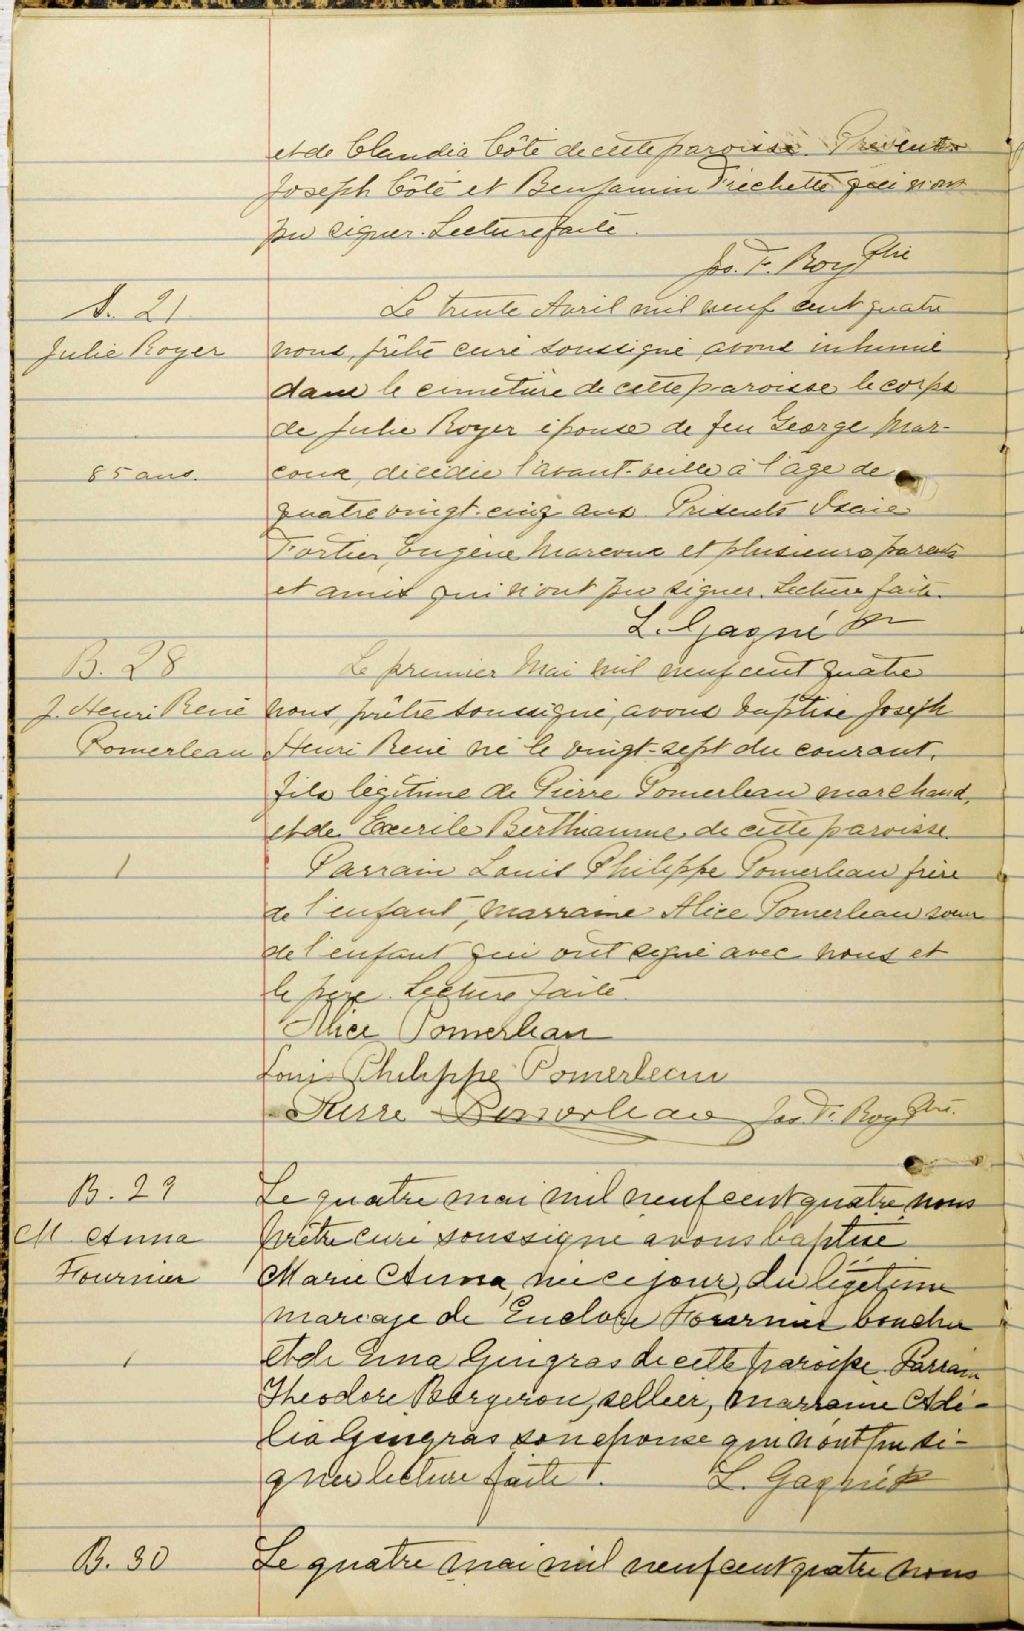 et de Claudia Côté de cette paroisse. Présents
Joseph Côté et Benjamin Fréchette qui n'ont
pu signer. Lecture faite.
Jos. F. Roy Ptre
S. 21
Julie Royer
85 ans.
Le trente Avril mil neuf cent quatre
nous, prêtre curé soussigné avons inhumé
dans le cimetière de cette paroisse le corps
de Julie Royer épouse de feu George Mar-
coux, décédée l'avant-veille à l'âge de
quatre vingt-cinq ans. Présents Isaie
Fortier, Eugène Marcoux et plusieurs parents
et amis qui n'ont pu signer. Lecture faite.
L. Gagné ptr
B. 28
J. Henri René
Pomerleau
1
Le premier Mai mil neuf cent quatre
nous prêtre soussigné, avons baptisé Joseph
Henri René né le vingt-sept du courant,
fils légitime de Pierre Pomerleau marchand,
et de Exerile Berthiaume de cette paroisse.
Parrain Louis Philippe Pomerleau frère
de l'enfant, marraine Alice Pomerleau soeur
de l'enfant qui ont signé avec nous et
le père. Lecture faite.
Alice Pomerleau
Louis Philippe Pomerleau
Pierre Pomerleau Jos. F. Roy Ptre.
B. 29
M. Anna
Fournier
1
Le quatre mai mil neuf cent quatre nous
prêtre curé soussigné avons baptisé
Marie Anna, née ce jour, du légitime
mariage de Fournier boucher
et de Ema Gingras de cette paroisse. Parrain
Théodore Bergeron, sellier, marraine Adé-
lia Gingras son épouse qui n'ont pu si-
gner lecture faite. L. Gagné Ptr
B. 30
Le quatre mai mil neuf cent quatre nous